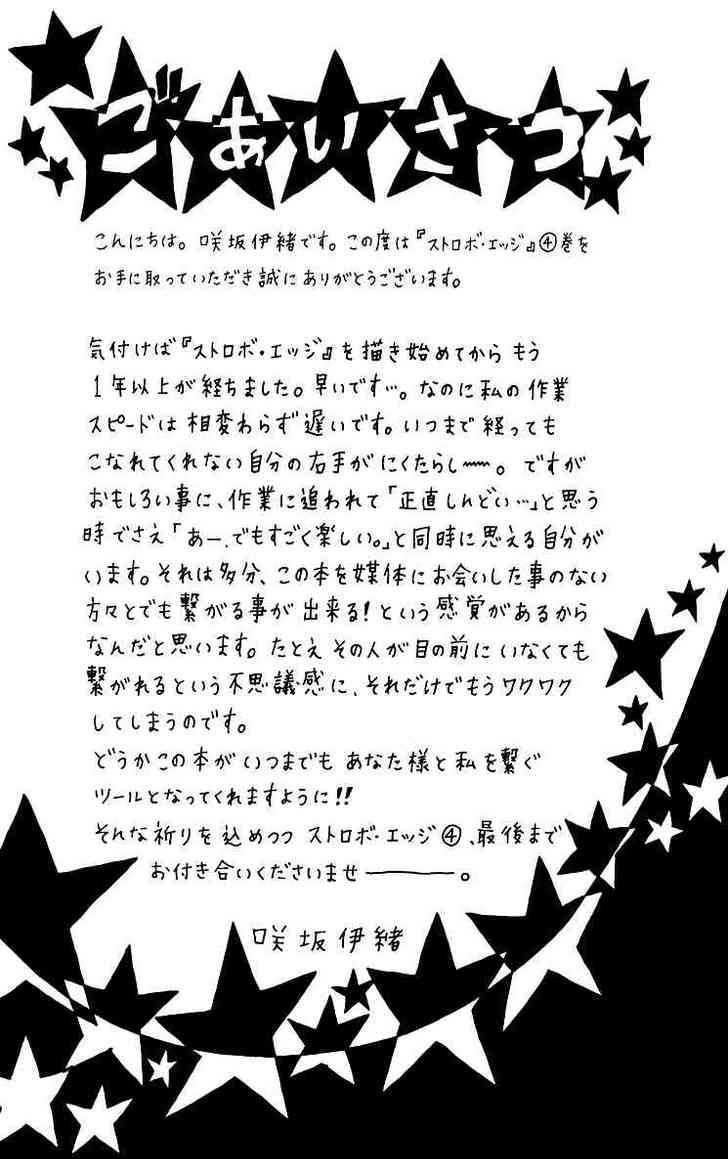 ごあいさつ
こんにちは。咲坂伊緒です。この度は『ストロボ・エッジ』④巻を
お手に取っていただき誠にありがとうございます。
気付けば『ストロボ・エッジ』を描き始めてからもう
1年以上が経ちました。早いです…。なのに私の作業
スピードは相変わらず遅いです。いつまで経っても
こなれてくれない自分の右手がにくたらし〜〜。ですが
おもしろい事に、作業に追われて「正直しんどい…」と思う
時でさえ「あー、でもすごく楽しい。」と同時に思える自分が
います。それは多分、この本を媒体にお会いした事のない
方々とでも繋がる事が出来る!という感覚があるから
なんだと思います。たとえその人が目の前にいなくても
繋がれるという不思議感に、それだけでもうワクワク
してしまうのです。
どうかこの本がいつまでもあなた様と私を繋ぐ
ツールとなってくれますように!!
そんな祈りを込めつつ ストロボ・エッジ④、最後まで
お付き合いくださいませ———。
咲坂伊緒